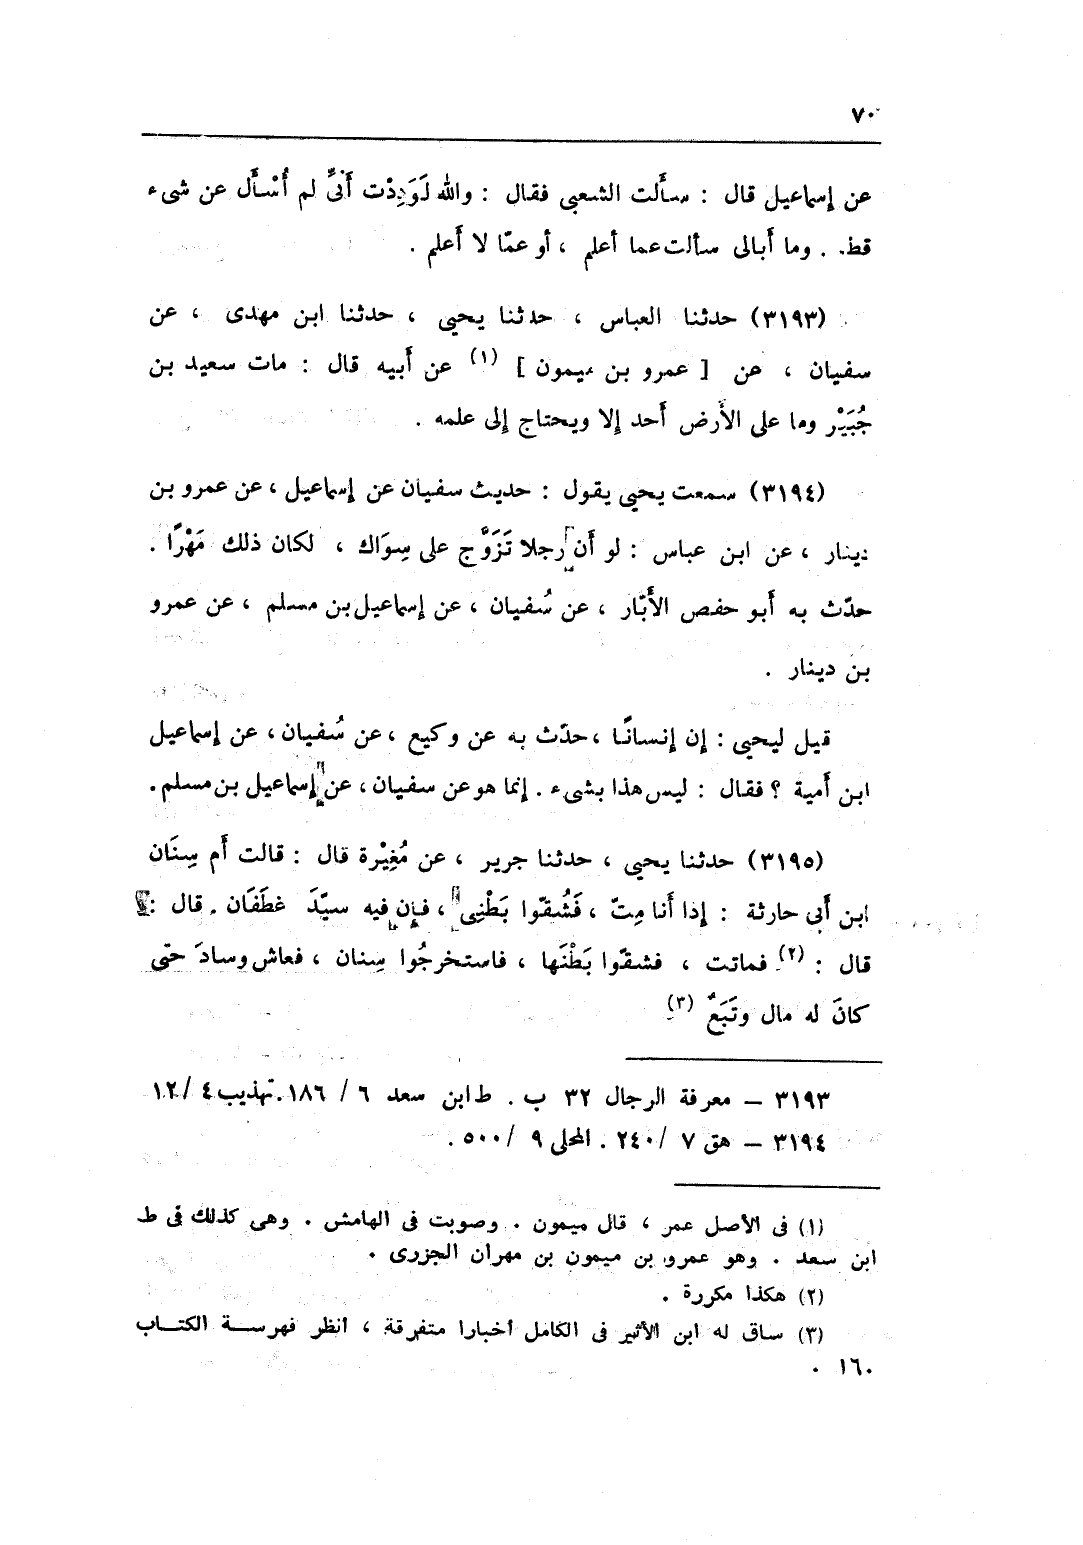 ٧٠
عن إسماعيل قال : سأَلت الشعبى فقال : والله لَوَدِدْت أَنىِّ لم أُسْأَل عن شىء
قط . وما أَبالى سألت عما أعلم ، أو عمّا لا أَعلم .
(٣١٩٣) حدثنا العباس ، حدثنا يحيى ، حدثنا ابن مهدى ، عن
سفيان ، عن [ عمرو بن ميمون ] (١) عن أَبيه قال : مات سعيد بن
جُبَيْر وما على الأَرض أَحد إلا ويحتاج إلى علمه .
(٣١٩٤) سمعت يحيى يقول : حديث سفيان عن إسماعيل ، عن عمرو بن
دينار ، عن ابن عباس : لو أَن رجلا تَزَوَّج على سِوَاك ، لكان ذلك مَهْرًا .
حدّث به أَبو حفص الأَبّار ، عن سُفيان ، عن إسماعيل بن مسلم ، عن عمرو
بن دينار .
قيل ليحيى : إن إنسانًا ، حدّث به عن وكيع ، عن سُفيان ، عن إسماعيل
ابن أَمية ؟ فقال : ليس هذا بشىء . إنما هو عن سفيان ، عن إسماعيل بن مسلم .
(٣١٩٥) حدثنا يحيى ، حدثنا جرير ، عن مُغِيْرة قال : قالت أَم سِنَان
ابن أَبى حارثة : إذا أَنا مِتّ ، فَشُقّوا بَطْنِى ، فإن فيه سيّدَ غطَفَان . قال :
قال : (٢) فماتت ، فشقّوا بَطْنَها ، فاستخرجُوا سِنان ، فعاش وسادَ حتى
كانَ له مال وتَبَعٌ (٣)
٣١٩٣ – معرفة الرجال ٣٢ ب . ط ابن سعد ٦ / ١٨٦ . تهذيب ٤ / ١٢
٣١٩٤ – هق ٧ / ٢٤٠ . المحلى ٩ / ٥٠٠ .
(١) فى الأصل عمر ، قال ميمون . وصوبت فى الهامش . وهى كذلك فى ط
ابن سعد . وهو عمرو بن ميمون بن مهران الجزرى .
(٢) هكذا مكررة .
(٣) ساق له ابن الأثير فى الكامل أخبارا متفرقة ، انظر فهرسة الكتاب
١٦٠ .